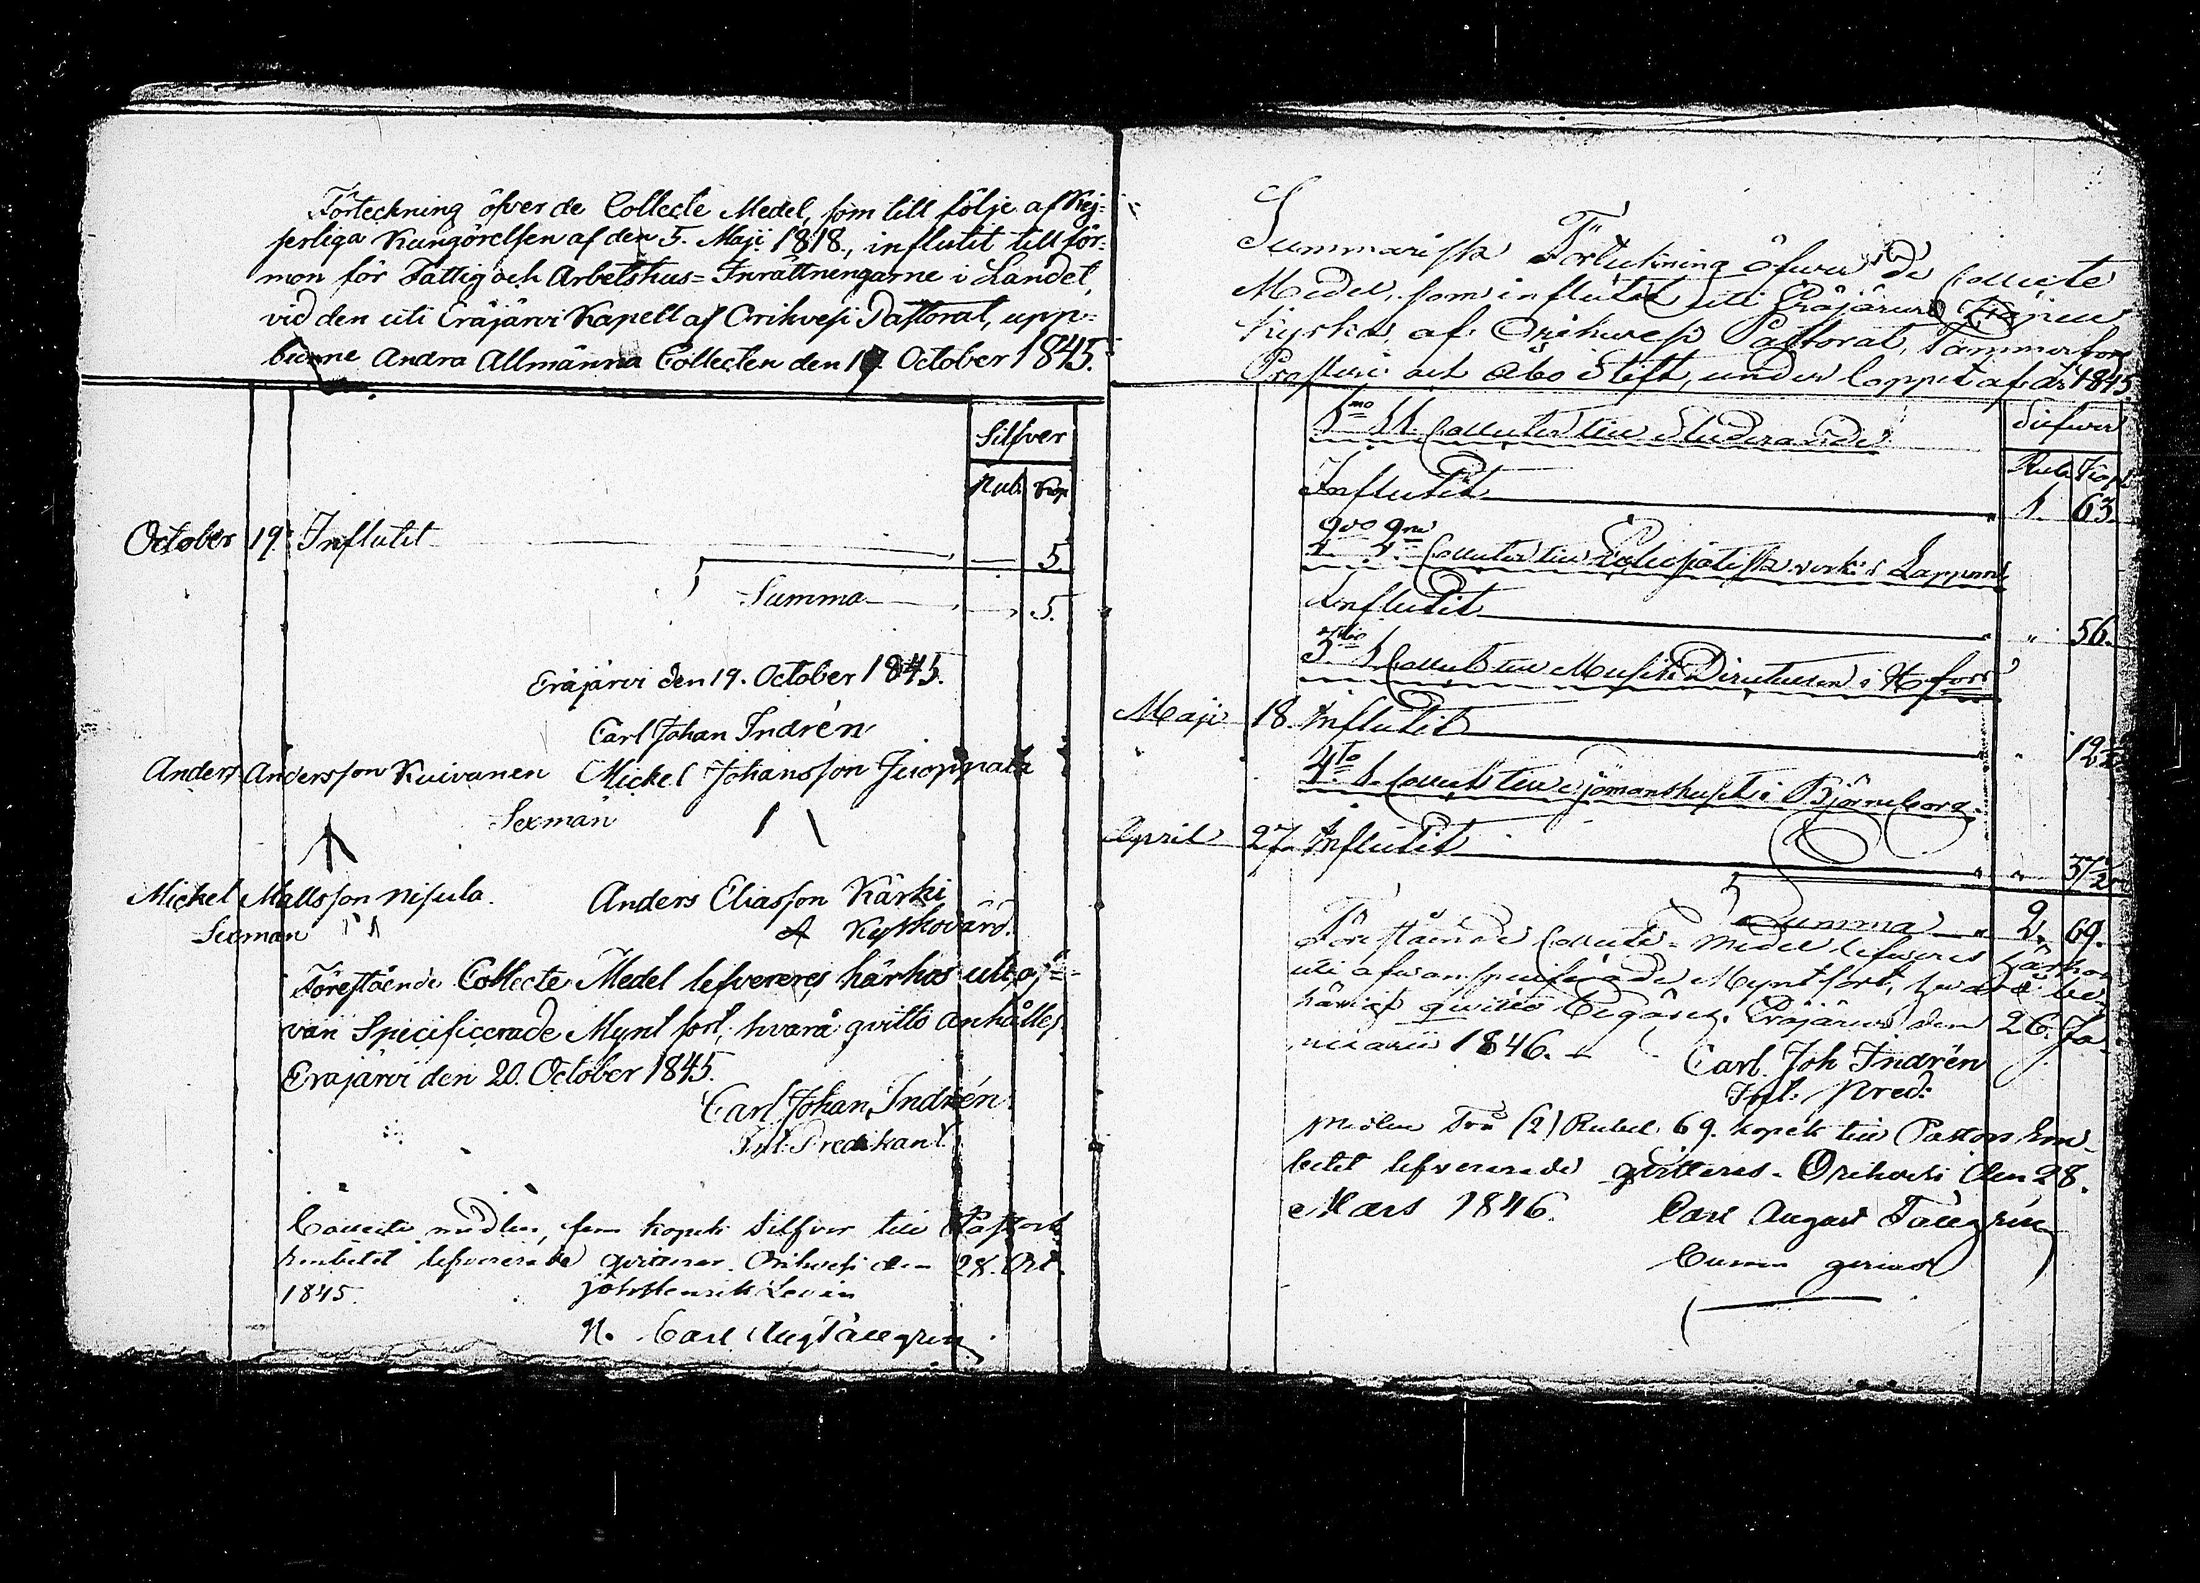 Förteckning öfver de Collecte Medel, som till följe af Kej-
serliga Kungörelsen af den 5. Maji 1818, influtit till för-
mon för Fattig och Arbetshus-Inrättnengarne i Landet,
vid den uti Eräjärvi Kapell af Orihvesi Pastorat, upp-
burne Andra Allmänna Collecten den 19 October 1845.
Silfver
Rub. Kop
October 19. Influtit 5.
Summa 5.
Eräjärvi den 19. October 1845.
Carl Johan Indrén
Anders Andersson Kuivanen Mickel Johansson
Sexman
Mickel Mattsson Nisula. Anders Eliasson Kärki
Sexman Kyrkovärd.
Föreståënde Collecte Medel lefvereres härhos uti of-
van Specificerade Mynt sort, hvarå qvitto anhålles
Eräjärvi den 20. October 1845.
Carl Johan Indrén
Predikant
Collecte medlen, fem kopek silfver till Pastors
Embetet lefvererade qvitteras. Orihvesi den 28. Oct
1845. Joh Henrik Levin
Carl Aug Tallgren
Summariska Förteckning öfwer de Collecte
Medel, som influtit uti Eräjärwi
Kyrka, af Orihwesi Pastorat, Tammerfors
Prosteri och Åbo Stift, under loppet af år 1845.
Silfwer
1mo Collecter till Studerande Rub. Kop.
Influtit 1. 63.
2do 2ne Collecter till Ecclesiastika werk i Lappmark
Influtit " 56.
3tio 1 Collect till Musik Directeuren i H.fors
Maji 18. Influtit " 12 1/2
4to 1. Collect till i Björneborg.
April 27. Influtit " 37 1/2
Summa 2. 69.
Föreståënde Collecte-Medel lefweres härhos
uti ofwanspecificerade Myntsort, hwarå
qvitto begäres. Eräjärwi den 26. Ja-
nuarii 1846.
Carl Joh Indrén
Pred:
Medlen Två (2) Rubel 69. kopek till Pastors Em-
betet lefvererade qvitteras. Orihvesi den 28.
Mars 1846. Carl August Tallgren